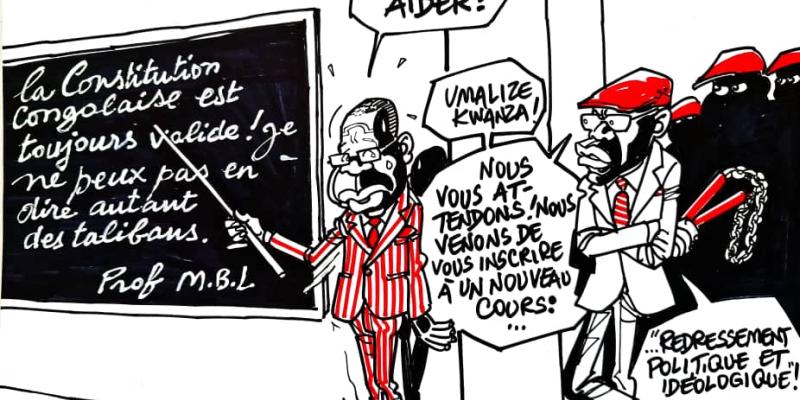 AIDER!
la Constitution
Congolaise est
toujours valide! je
ne peux pas en-
dire autant
des talibans.
Prof M.B.L
UMALIZE
KWANZA!
NOUS
VOUS AT-
TENDONS! NOUS
VENONS DE
VOUS INSCRIRE
À UN NOUVEAU
COURS:
...
..."REDRESSEMENT
POLITIQUE ET
IDÉOLOGIQUE"!